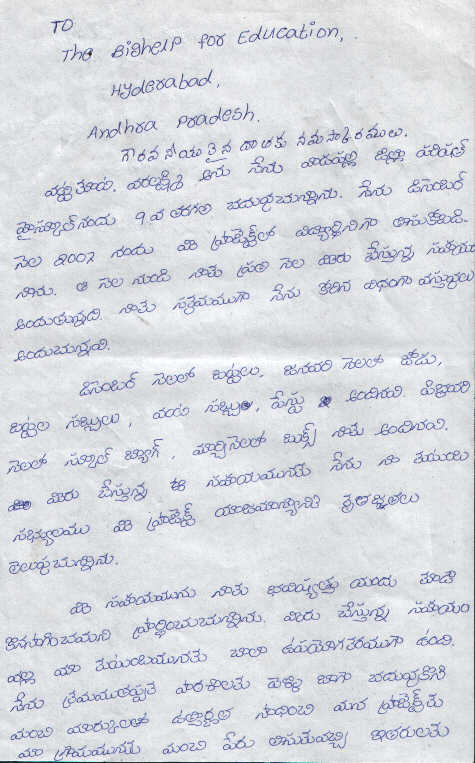 TO
The Bighelp for Education,.
Hyderabad,
Andhra Pradesh.
గౌరవనీయులైన దాతకు నమస్కారములు.
అను నేను జిల్లా పరిషత్
హైస్కూల్ నందు 9.వ తరగతి చదువుచున్నాను. నేను డిసెంబర్
నెల 2007 నందు మీ ప్రాజెక్ట్‌లో విద్యార్థినిగా తీసుకోబడి-
నాను. ఆ నెల నుండి నాకు ప్రతి నెల మీరు చేస్తున్న సహాయం
అందుతున్నది. నాకు సక్రమముగా నేను కోరిన విధంగా వస్తువులు
అందుచున్నవి.
డిసెంబర్ నెలలో బట్టలు, జనవరి నెలలో
బట్టల సబ్బులు, వంటి సబ్బులు, పేస్టు అందినవి. ఫిబ్రవరి
నెలలో స్కూల్ బ్యాగ్, మార్చి నెలలో బుక్స్ నాకు అందినవి.
మీరు చేస్తున్న ఈ సహాయమునకు నేను నా కుటుంబ
సభ్యులము మీ ప్రాజెక్ట్ యాజమాన్యానికి కృతజ్ఞతలు
తెలుపుచున్నాను.
మీ సహాయమును నాకు భవిష్యత్తు యందు కూడా
కొనసాగించమని ప్రార్థించుచున్నాను. మీరు చేస్తున్న సహాయం
వల్ల మా కుటుంబమునకు చాలా ఉపయోగకరముగా ఉంది.
నేను క్రమముతప్పక పాఠశాలకు వెళ్ళి బాగా చదువుకొని
మంచి మార్కులతో ఉత్తీర్ణత సాధించి మన ప్రాజెక్ట్‌కు
మా గ్రామమునకు మంచి పేరు తీసుకువచ్చి ఇతరులకు